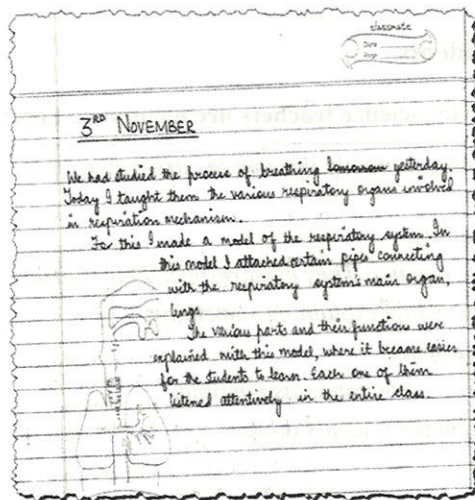 classmate
Date
Page
3RD NOVEMBER
We had studied the process of breathing tomorrow yesterday.
Today I taught them the various respiratory organs involved
in respiration mechanism.
For this I made a model of the respiratory system. In
this model I attached certain pipes connecting
with the respiratory system's main organ,
lungs
The various parts and their function were
explained with this model, where it became easier
for the students to learn. Each one of them
listened attentively in the entire class.